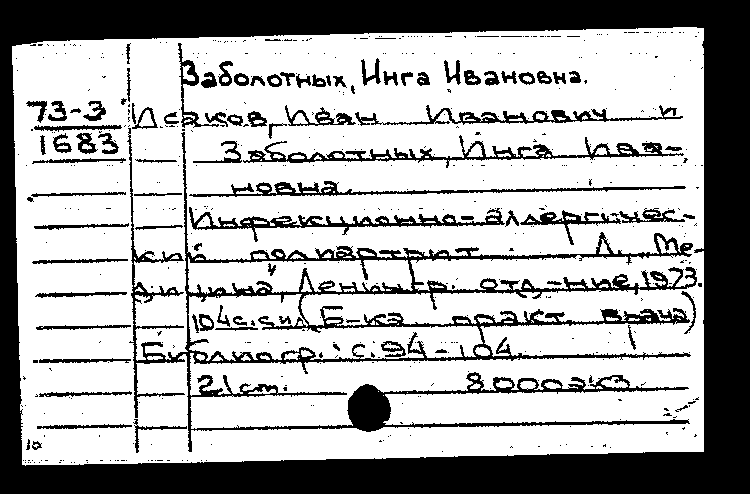 Заболотных, Инга Ивановна.
73-3
1683
Исаков, Иван Иванович и
Заболотных, Инга Ива-
новна.
Инфекционно-аллергичес-
кий полиартрит. Л., Ме-
дицина, Ленингр. отд-ние, 1973.
104с. с ил. (Б-ка практ. врача)
Библиогр.: с. 94-104.
21 см. 8000экз
10